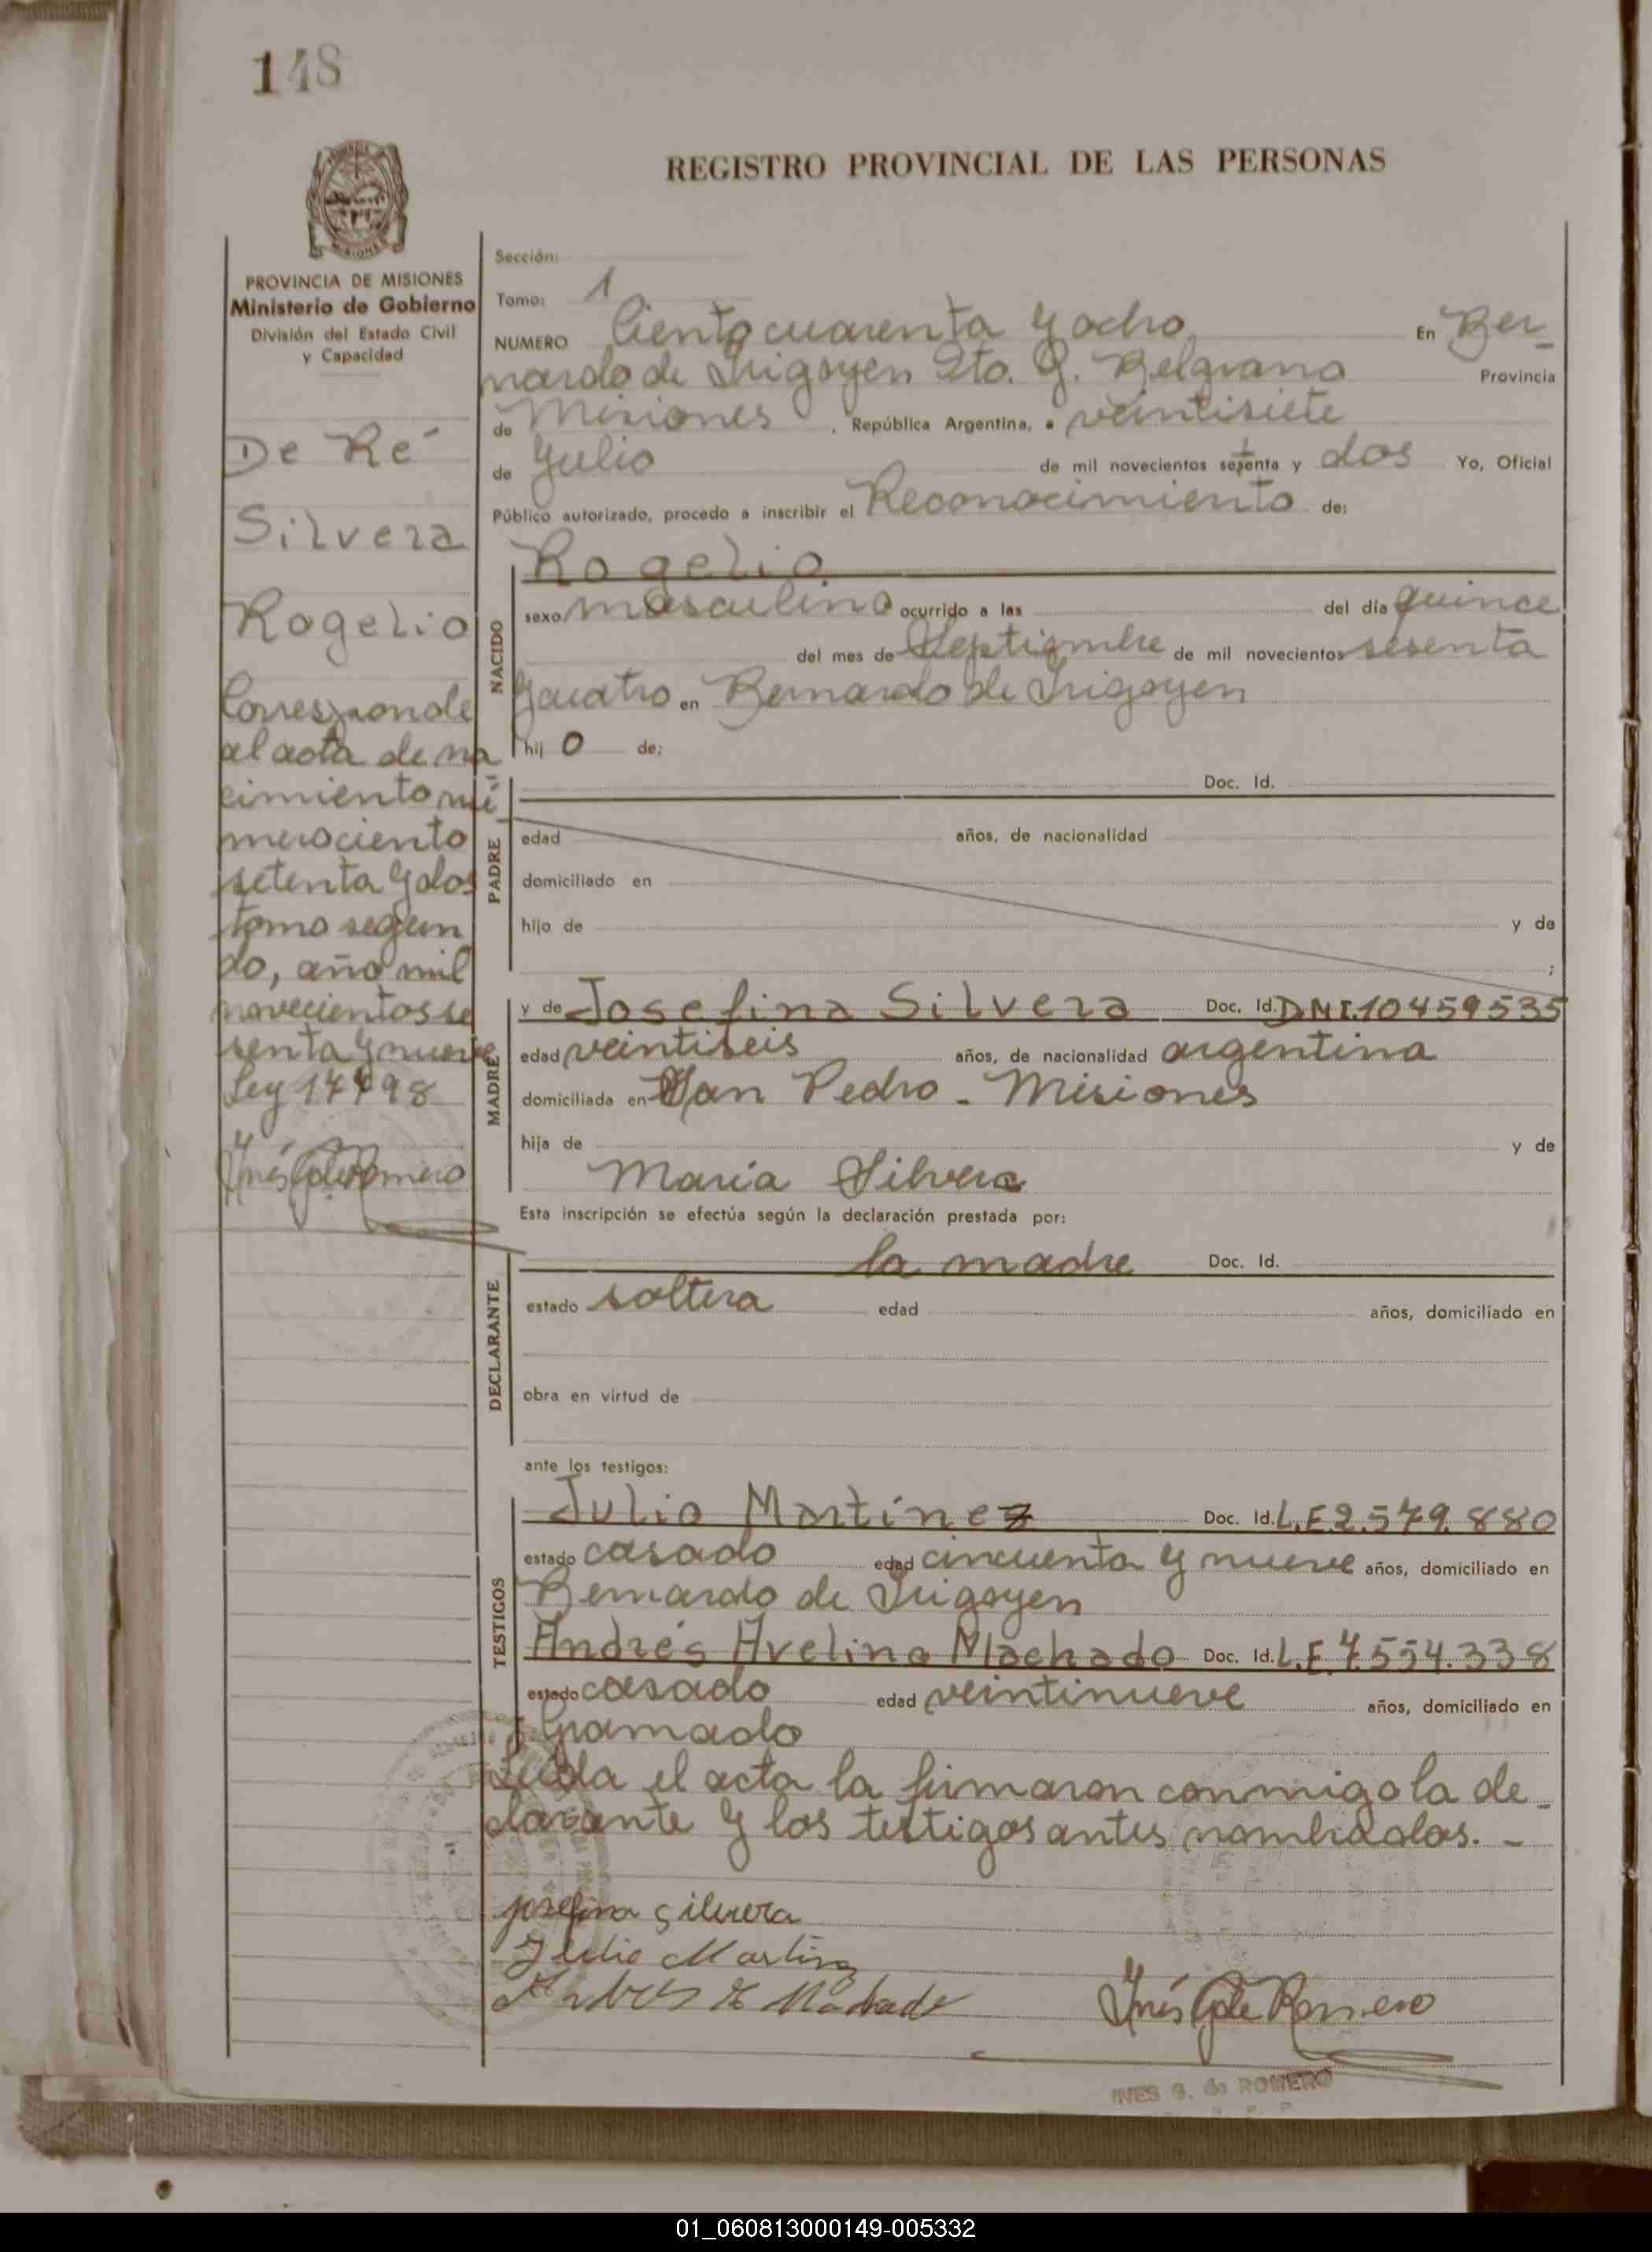 148
REGISTRO PROVINCIAL DE LAS PERSONAS
MISIONES
PROVINCIA DE MISIONES
Ministerio de Gobierno
División del Estado Civil
y Capacidad
De Ré
Silvera
Rogelio
Corresponde
al acta de na
cimiento nú
mero ciento
setenta y dos
tomo segun
do, año mil
novecientos se
senta y nueve
Ley 17498
Inés G de Romero
Sección:
Tomo: 1
NUMERO Ciento cuarenta y ocho En Ber_
nardo de Irigoyen Dto. G. Belgrano Provincia
de Misiones, República Argentina, a veintisiete
de Julio de mil novecientos setenta y dos Yo, Oficial
Público autorizado, procedo a inscribir el Reconocimiento de:
NACIDO
Rogelio
sexo masculino ocurrido a las del día quince
del mes de Septiembre de mil novecientos sesenta
y cuatro en Bernardo de Irigoyen
hij o de;
PADRE
Doc. Id.
edad años, de nacionalidad
domiciliado en
hijo de y de
;
MADRE
y de Josefina Silvera Doc. Id. DNI.10459535
edad veintiseis años, de nacionalidad argentina
domiciliada en San Pedro - Misiones
hija de y de
María Silvera
Esta inscripción se efectúa según la declaración prestada por:
DECLARANTE
la madre Doc. Id.
estado soltera edad años, domiciliado en
obra en virtud de
ante los testigos:
TESTIGOS
Julio Martínez Doc. Id. L.E 2.579.880
estado casado edad cincuenta y nueve años, domiciliado en
Bernardo de Irigoyen
Andrés Avelino Machado Doc. Id. L.E. 7.554.338
estado casado edad veintinueve años, domiciliado en
Gramado
Leída el acta la firmaron conmigo la de_
clarante y los testigos antes nombrados. -
josefina silvera
Julio Martinz
Machado
Inés G de Romero
INES G. de ROMERO
01_060813000149-005332